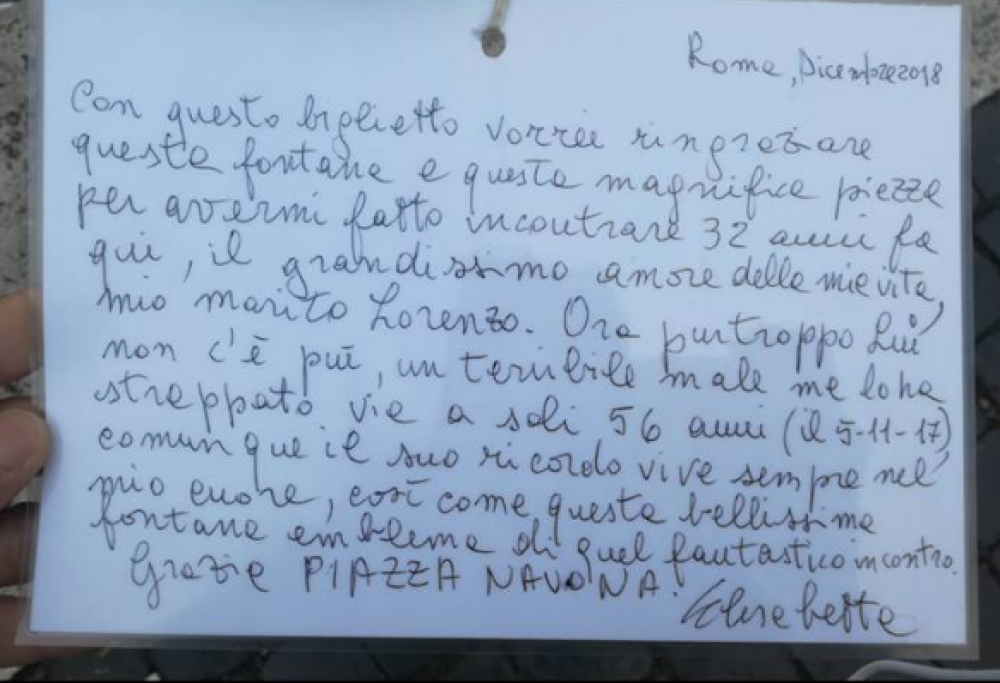 Roma, Dicembre 2018
Con questo biglietto vorrei ringraziare
questa fontana e questa magnifica piazza
per avermi fatto incontrare 32 anni fa
qui, il grandissimo amore della mia vita,
mio marito Lorenzo. Ora purtroppo Lui
non c'è più, un terribile male me lo ha
strappato via a soli 56 anni (il 5-11-17)
comunque il suo ricordo vive sempre nel
mio cuore, così come questa bellissima
fontana emblema di quel fantastico incontro.
Grazie PIAZZA NAVONA!
Elisabetta